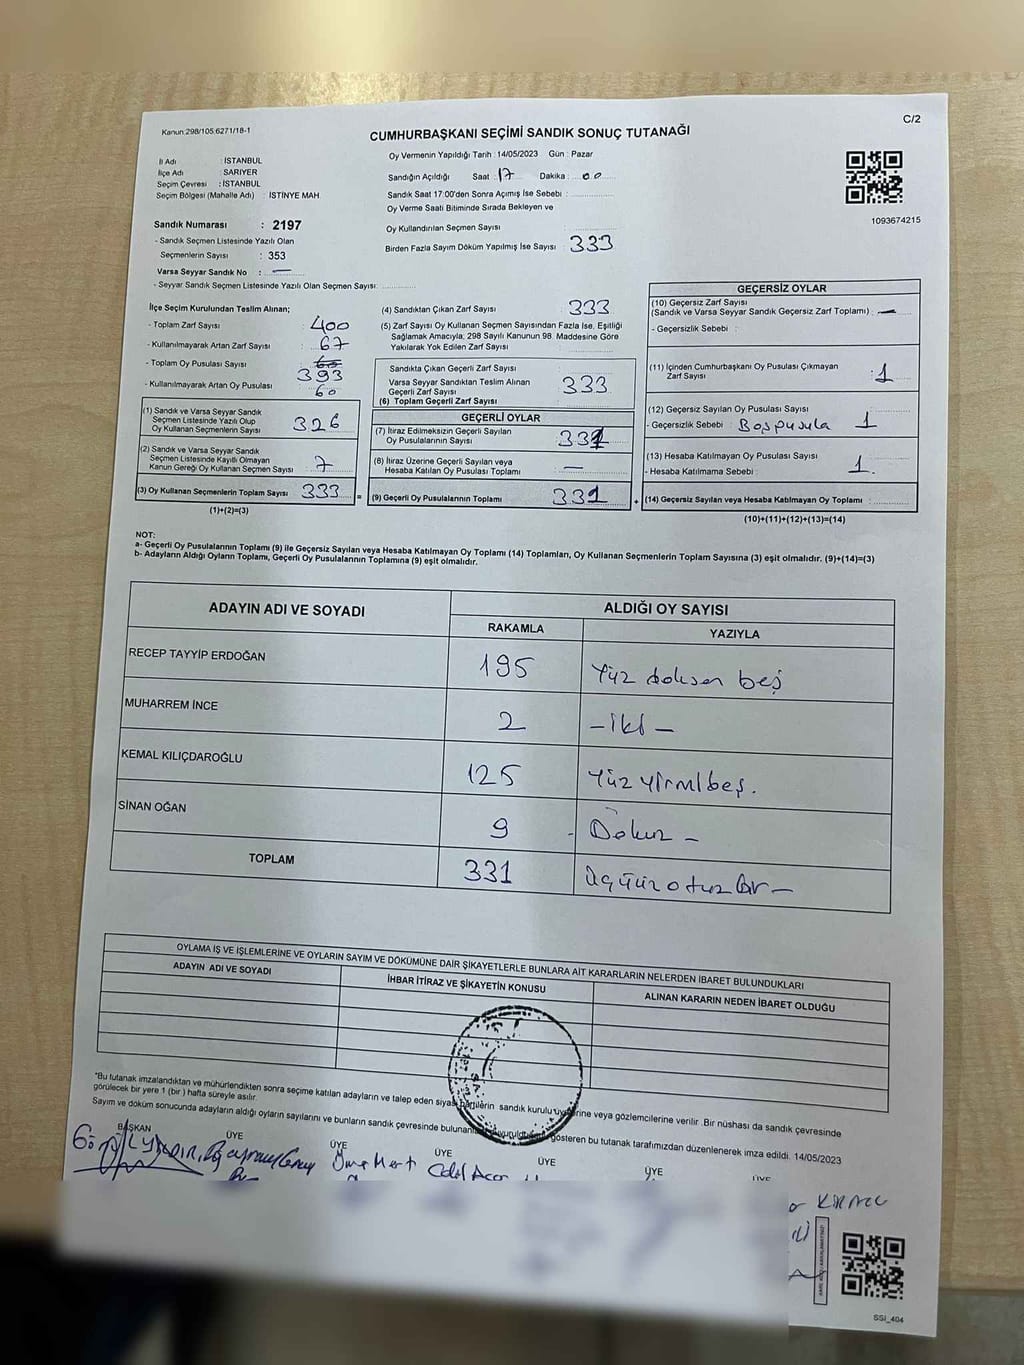 Kanun:298/105.6271/18-1
C/2
CUMHURBAŞKANI SEÇİMİ SANDIK SONUÇ TUTANAĞI
İl Adı : İSTANBUL
İlçe Adı : SARIYER
Seçim Çevresi : İSTANBUL
Seçim Bölgesi (Mahalle Adı) : İSTİNYE MAH
Oy Vermenin Yapıldığı Tarih :14/05/2023 Gün : Pazar
Sandığın Açıldığı Saat : 17 Dakika : 00
Sandık Saat 17:00'den Sonra Açımış İse Sebebi :
Oy Verme Saati Bitiminde Sırada Bekleyen ve
Oy Kullandırılan Seçmen Sayısı :
Birden Fazla Sayım Döküm Yapılmış İse Sayısı 333
1093674215
Sandık Numarası : 2197
- Sandık Seçmen Listesinde Yazılı Olan
Seçmenlerin Sayısı : 353
Varsa Seyyar Sandık No : —
- Seyyar Sandık Seçmen Listesinde Yazılı Olan Seçmen Sayısı:
İlçe Seçim Kurulundan Teslim Alınan;
- Toplam Zarf Sayısı : 400
- Kullanılmayarak Artan Zarf Sayısı : 67
- Toplam Oy Pusulası Sayısı : 393
- Kullanılmayarak Artan Oy Pusulası 60
(1) Sandık ve Varsa Seyyar Sandık
Seçmen Listesinde Yazılı Olup
Oy Kullanan Seçmenlerin Sayısı 326
(2) Sandık ve Varsa Seyyar Sandık
Seçmen Listesinde Kayıtlı Olmayan
Kanun Gereği Oy Kullanan Seçmen Sayısı 7
(3) Oy Kullanan Seçmenlerin Toplam Sayısı 333 =
(1)+(2)=(3)
(4) Sandıktan Çıkan Zarf Sayısı 333
(5) Zarf Sayısı Oy Kullanan Seçmen Sayısından Fazla İse, Eşitliği
Sağlamak Amacıyla; 298 Sayılı Kanunun 98. Maddesine Göre
Yakılarak Yok Edilen Zarf Sayısı
Sandıkta Çıkan Geçerli Zarf Sayısı
Varsa Seyyar Sandıktan Teslim Alınan
Geçerli Zarf Sayısı 333
(6) Toplam Geçerli Zarf Sayısı
GEÇERLİ OYLAR
(7) İtiraz Edilmeksizin Geçerli Sayılan
Oy Pusulalarının Sayısı 331
(8) İtiraz Üzerine Geçerli Sayılan veya
Hesaba Katılan Oy Pusulası Toplamı —
(9) Geçerli Oy Pusulalarının Toplamı 331 +
GEÇERSİZ OYLAR
(10) Geçersiz Zarf Sayısı
(Sandık ve Varsa Seyyar Sandık Geçersiz Zarf Toplamı) : —
- Geçersizlik Sebebi :
(11) İçinden Cumhurbaşkanı Oy Pusulası Çıkmayan
Zarf Sayısı : 1
(12) Geçersiz Sayılan Oy Pusulası Sayısı
- Geçersizlik Sebebi : Boş pusula 1
(13) Hesaba Katılmayan Oy Pusulası Sayısı
- Hesaba Katılmama Sebebi : 1.
(14) Geçersiz Sayılan veya Hesaba Katılmayan Oy Toplamı :
(10)+(11)+(12)+(13)=(14)
NOT:
a- Geçerli Oy Pusulalarının Toplamı (9) ile Geçersiz Sayılan veya Hesaba Katılmayan Oy Toplamı (14) Toplamları, Oy Kullanan Seçmenlerin Toplam Sayısına (3) eşit olmalıdır. (9)+(14)=(3)
b- Adayların Aldığı Oyların Toplamı, Geçerli Oy Pusulalarının Toplamına (9) eşit olmalıdır.
ADAYIN ADI VE SOYADI
ALDIĞI OY SAYISI
RAKAMLA YAZIYLA
RECEP TAYYİP ERDOĞAN 195 Yüz doksan beş
MUHARREM İNCE 2 – iki –
KEMAL KILIÇDAROĞLU 125 Yüz yirmi beş.
SİNAN OĞAN 9 - Dokuz –
TOPLAM 331 üçyüz otuz bir –
OYLAMA İŞ VE İŞLEMLERİNE VE OYLARIN SAYIM VE DÖKÜMÜNE DAİR ŞİKAYETLERLE BUNLARA AİT KARARLARIN NELERDEN İBARET BULUNDUKLARI
ADAYIN ADI VE SOYADI İHBAR İTİRAZ VE ŞİKAYETİN KONUSU ALINAN KARARIN NEDEN İBARET OLDUĞU
*Bu tutanak imzalandıktan ve mühürlendikten sonra seçime katılan adayların ve talep eden siyasi partilerin sandık kurulu üyelerine veya gözlemcilerine verilir. Bir nüshası da sandık çevresinde
görülecek bir yere 1 (bir) hafta süreyle asılır.
Sayım ve döküm sonucunda adayların aldığı oyların sayılarını ve bunların sandık çevresinde bulunan gösteren bu tutanak tarafımızdan düzenlenerek imza edildi. 14/05/2023
BAŞKAN ÜYE ÜYE ÜYE ÜYE ÜYE ÜYE
Ömer Mert
SSİ_404